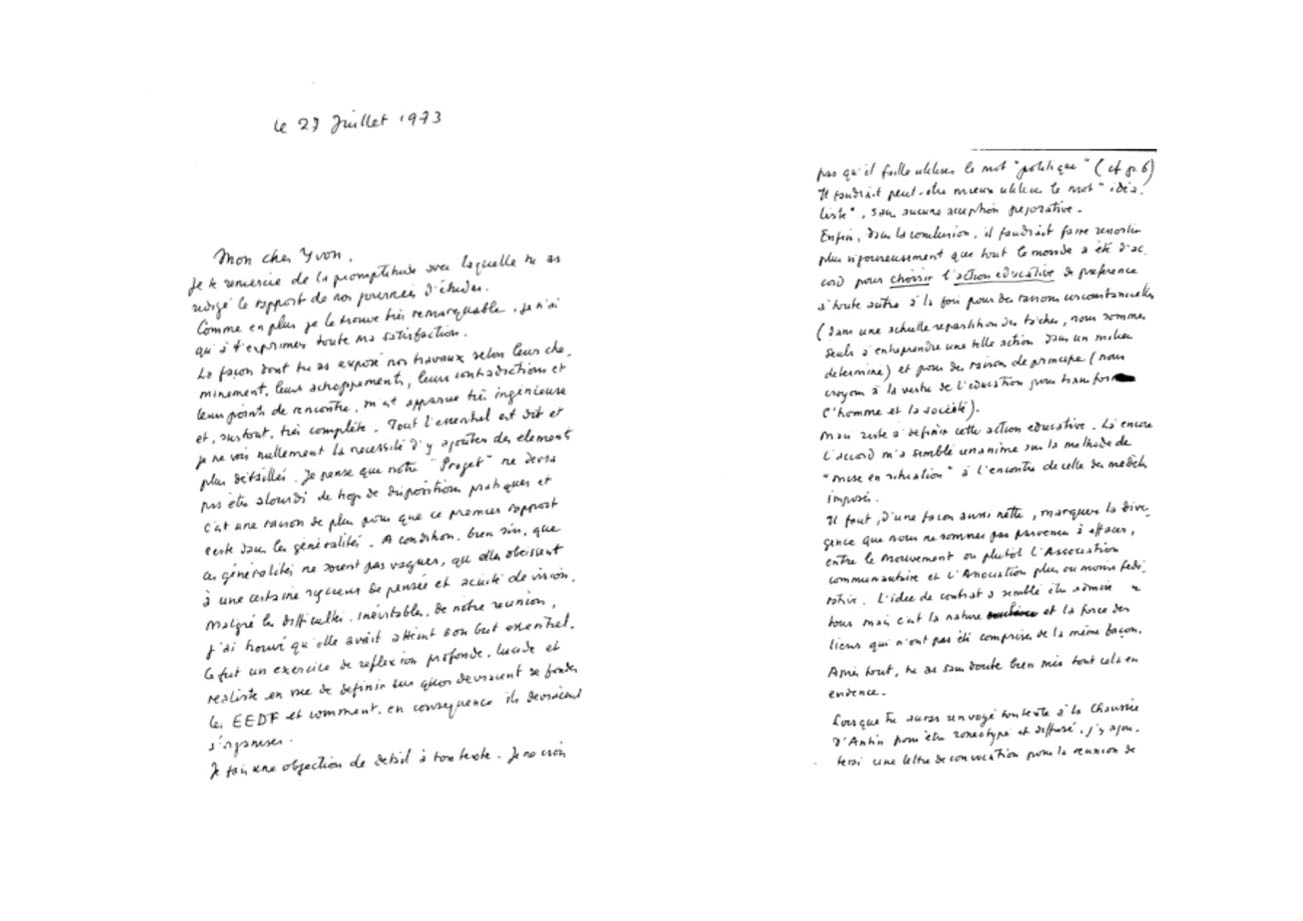 le 27 Juillet 1973
Mon cher Yvon,
Je te remercie de la promptitude avec laquelle tu as
redigé le rapport de nos journées d'études.
Comme en plus je le trouve très remarquable, je n'ai
qu'à t'exprimer toute ma satisfaction.
La façon dont tu as exposé nos travaux selon leur che-
minement, leurs achoppements, leurs contradictions et
leurs points de rencontre, m'est apparue très ingénieuse
et, surtout, très complète. Tout l'essentiel est dit et
je ne vois nullement la necessité d'y ajouter des elements
plus détaillés. Je pense que notre "Projet" ne devra
pas être alourdi de trop de dispositions pratiques et
c'est une raison de plus pour que ce premier rapport
reste dans les généralités. A condition, bien sûr, que
ces généralités ne soient pas vagues, qu'elles obeissent
à une certaine rigueur de pensée et acuité de vision.
Malgré les difficultés, inévitables, de notre reunion,
j'ai trouvé qu'elle avait atteint son but essentiel.
Ce fut un exercice de reflexion profonde, lucide et
realiste en vue de definir sur quoi devraient se fonder
les EEDF et comment, en consequence ils devraient
s'organiser.
Je fais une objection de detail à ton texte. Je ne crois
pas qu'il faille utiliser le mot "politique" (cf p. 6)
Il faudrait peut-être mieux utiliser le mot "idéa-
liste", sans aucune acception pejorative.
Enfin, dans la conclusion, il faudrait faire ressortir
plus vigoureusement que tout le monde a été d'ac-
cord pour choisir l'action educative de preference
à toute autre à la fois pour des raisons circonstancielles
(dans une actuelle repartition des tâches, nous sommes
seuls à entreprendre une telle action dans un milieu
determine) et pour des raisons de principe (nous
croyons à la vertu de l'education pour transformer
l'homme et la société).
Mais reste à definir cette action educative. Là encore
l'accord m'a semblé unanime sur la methode de
"mise en situation" à l'encontre de celle des modèles
imposés.
Il faut, d'une façon aussi nette, marquer la diver-
gence que nous ne sommes pas parvenus à effacer,
entre le Mouvement ou plutôt l'Association
communautaire et l'Association plus ou moins fedé-
rative. L'idee de contrat a semblé être admise
tous mais c'est la nature et la force des
liens qui n'ont pas été comprises de la même façon.
Après tout, tu as sans doute bien mis tout cela en
evidence.
Lorsque tu auras renvoyé ton texte à la Chaussée
d'Antin pour être roneotypé et diffusé, j'y ajou-
terai une lettre de convocation pour la reunion de